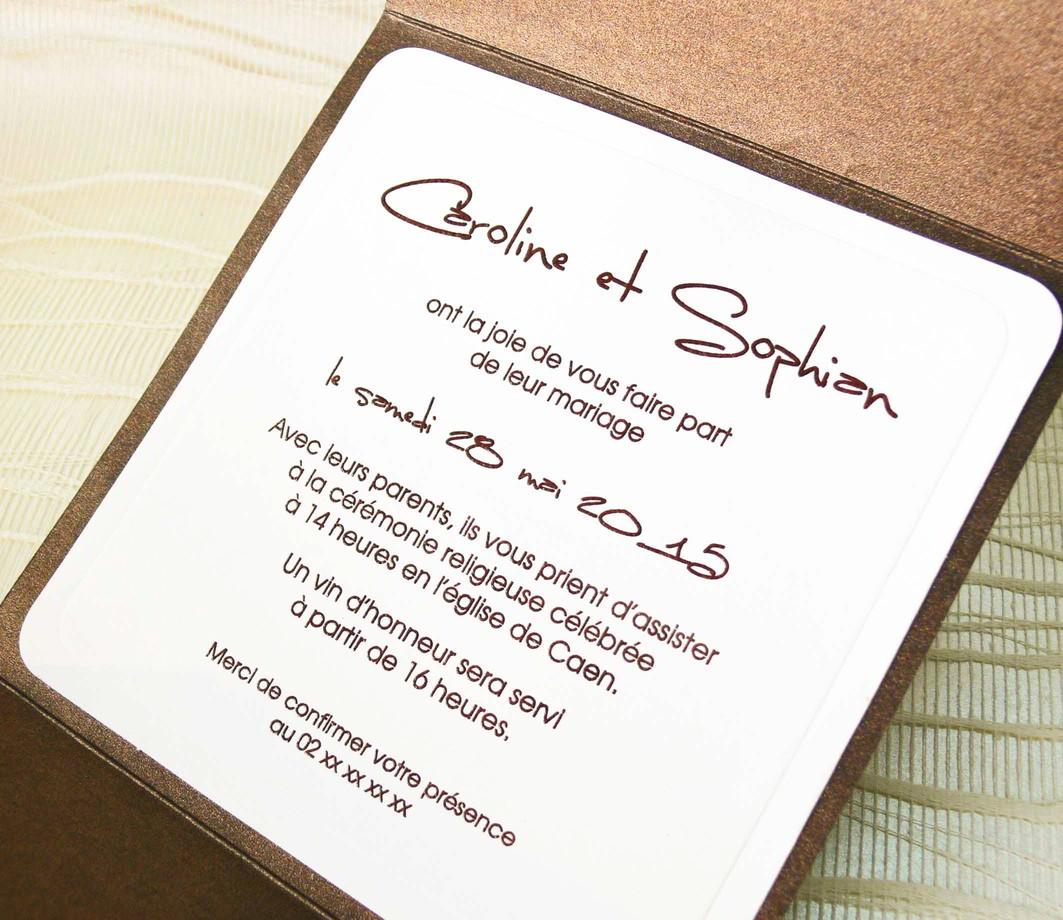 Caroline et Sophian
ont la joie de vous faire part
de leur mariage
le samedi 28 mai 2015
Avec leurs parents, ils vous prient d'assister
à la cérémonie religieuse célébrée
à 14 heures en l'église de Caen.
Un vin d'honneur sera servi
à partir de 16 heures.
Merci de confirmer votre présence
au 02 xx xx xx xx